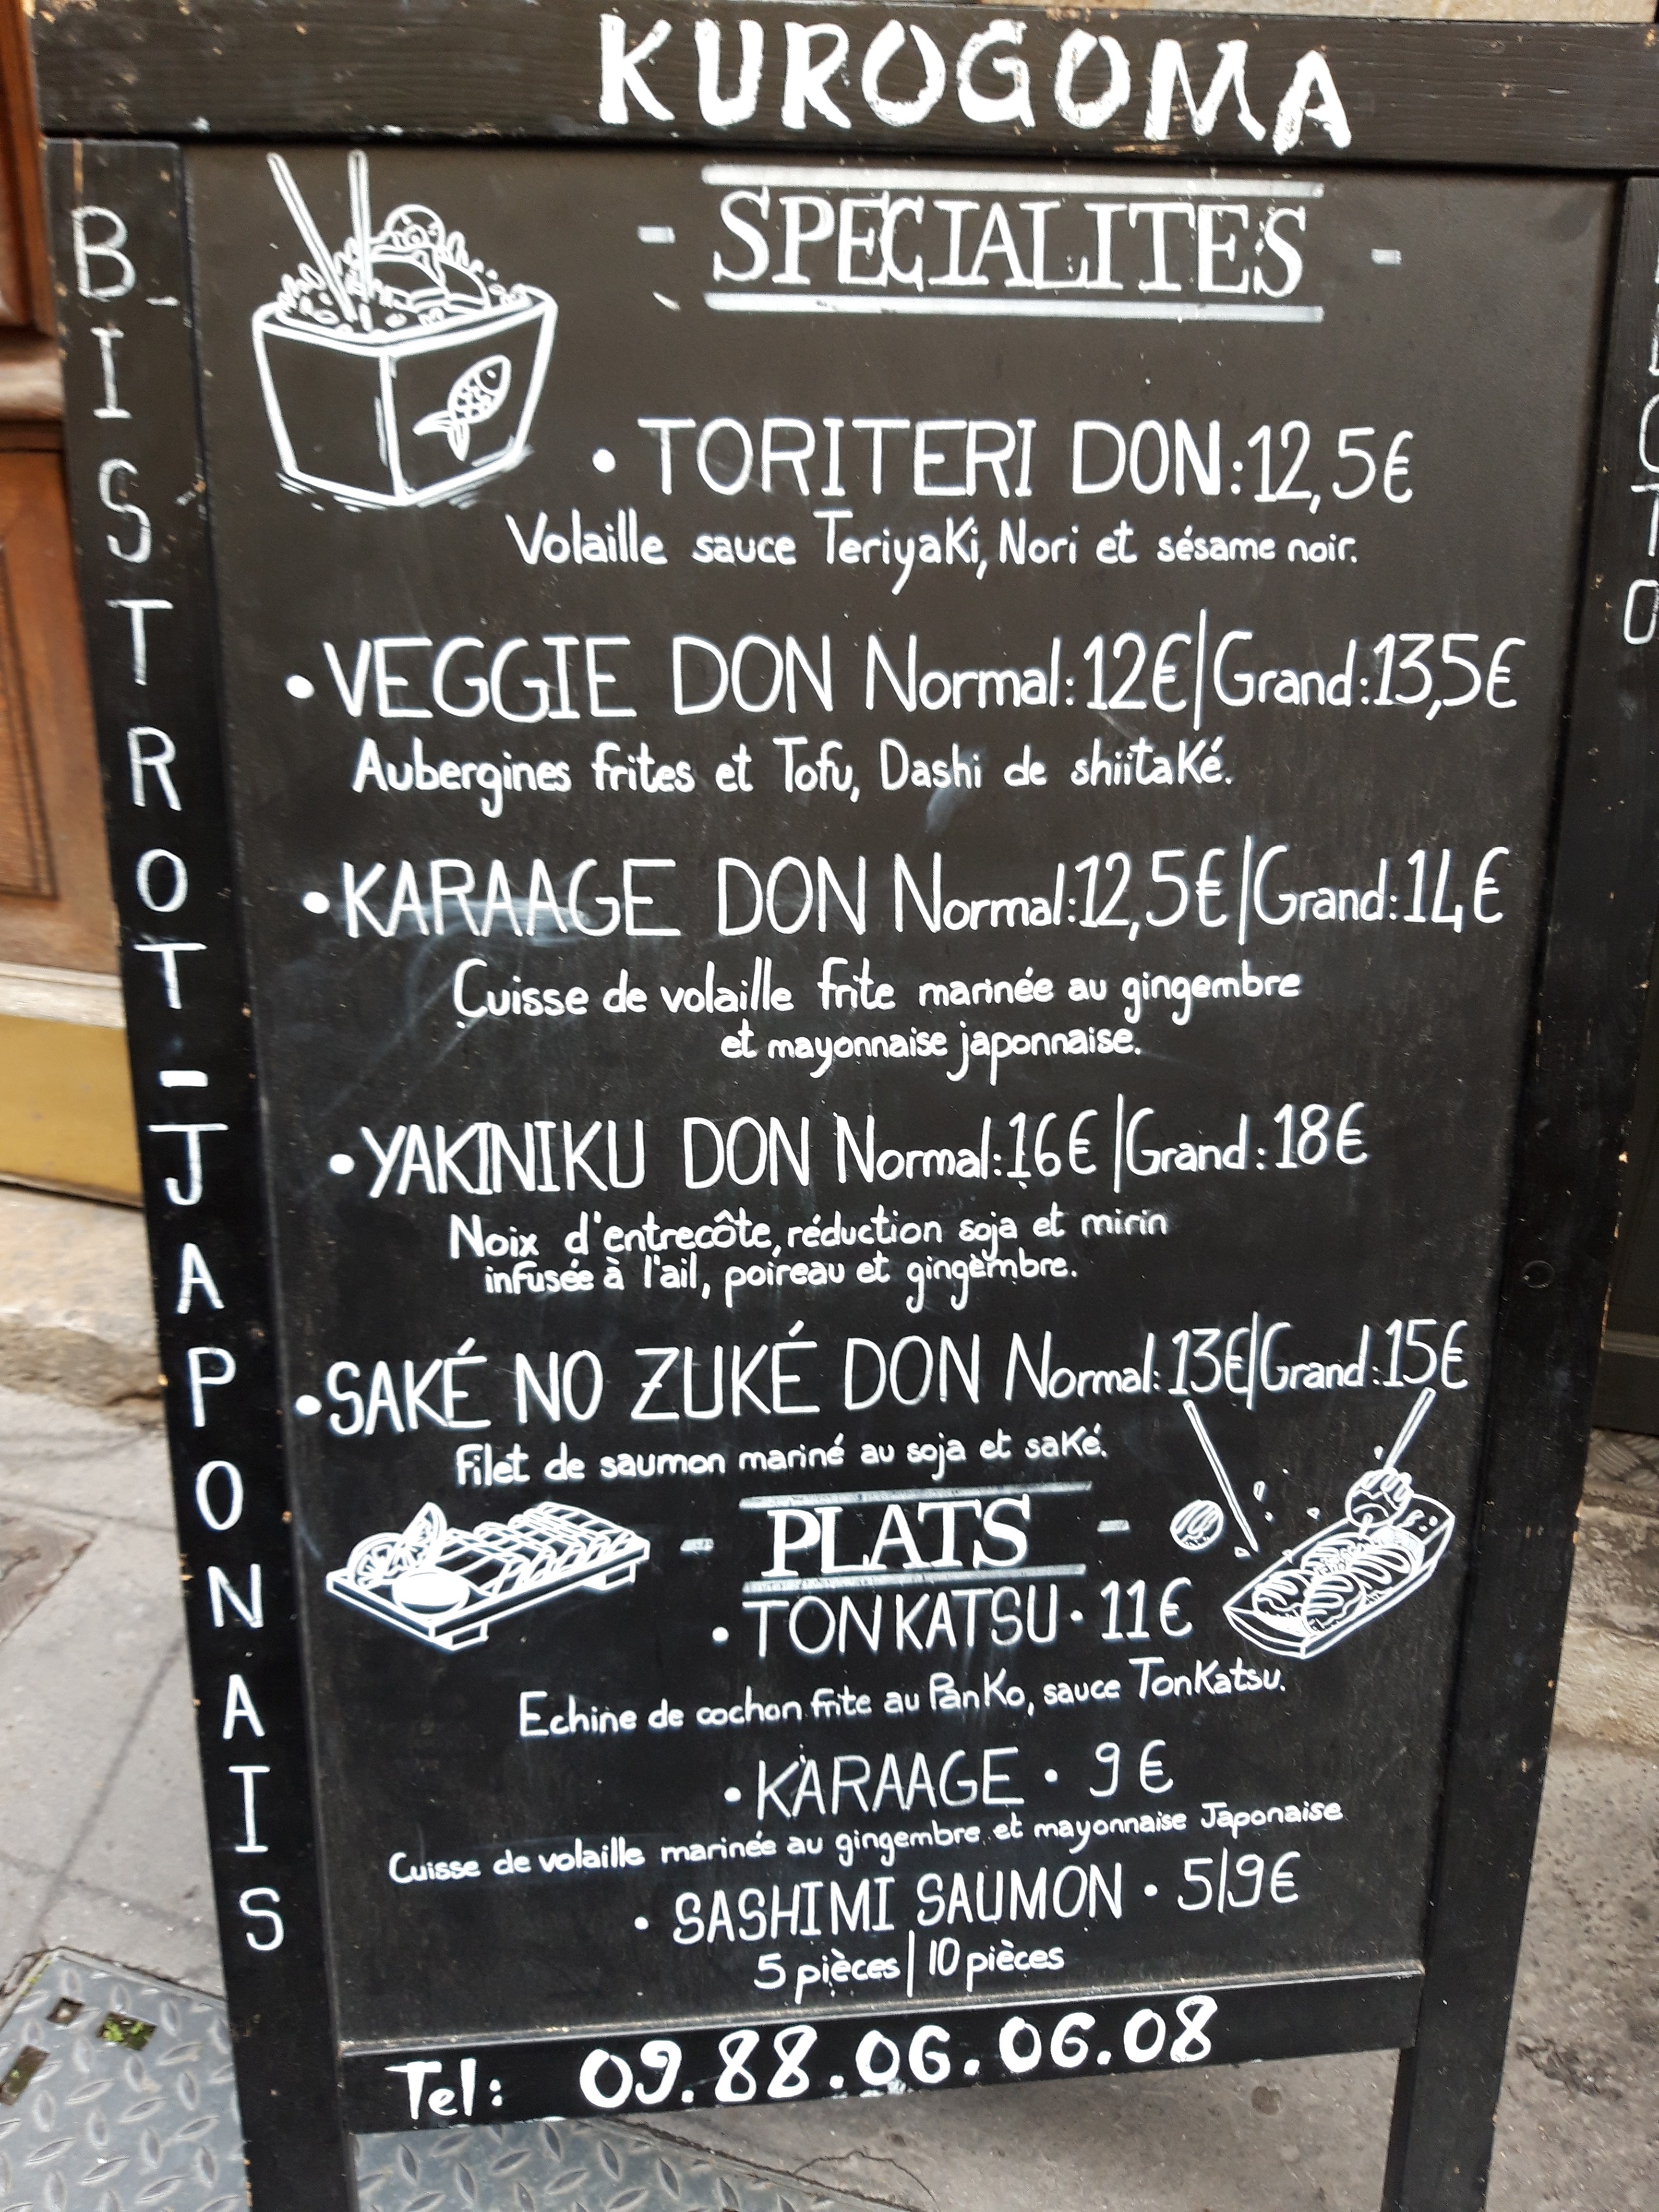 KUROGOMA
BISTROT-JAPONAIS
- SPECIALITES -
• TORITERI DON:12,5€
Volaille sauce Teriyaki, Nori et sésame noir.
• VEGGIE DON Normal: 12€|Grand:13,5€
Aubergines frites et Tofu, Dashi de shiitaké.
• KARAAGE DON Normal:12,5€|Grand:14€
Cuisse de volaille frite marinée au gingembre
et mayonnaise japonnaise.
• YAKINIKU DON Normal:16€|Grand:18€
Noix d'entrecôte, réduction soja et mirin
infusée à l'ail, poireau et gingembre.
• SAKÉ NO ZUKÉ DON Normal: 13€|Grand:15€
Filet de saumon mariné au soja et saké.
- PLATS -
• TONKATSU • 11€
Echine de cochon frite au Panko, sauce Tonkatsu.
• KARAAGE • 9€
Cuisse de volaille marinée au gingembre et mayonnaise Japonaise
• SASHIMI SAUMON • 5|9€
5 pièces | 10 pièces
Tel: 09.88.06.06.08